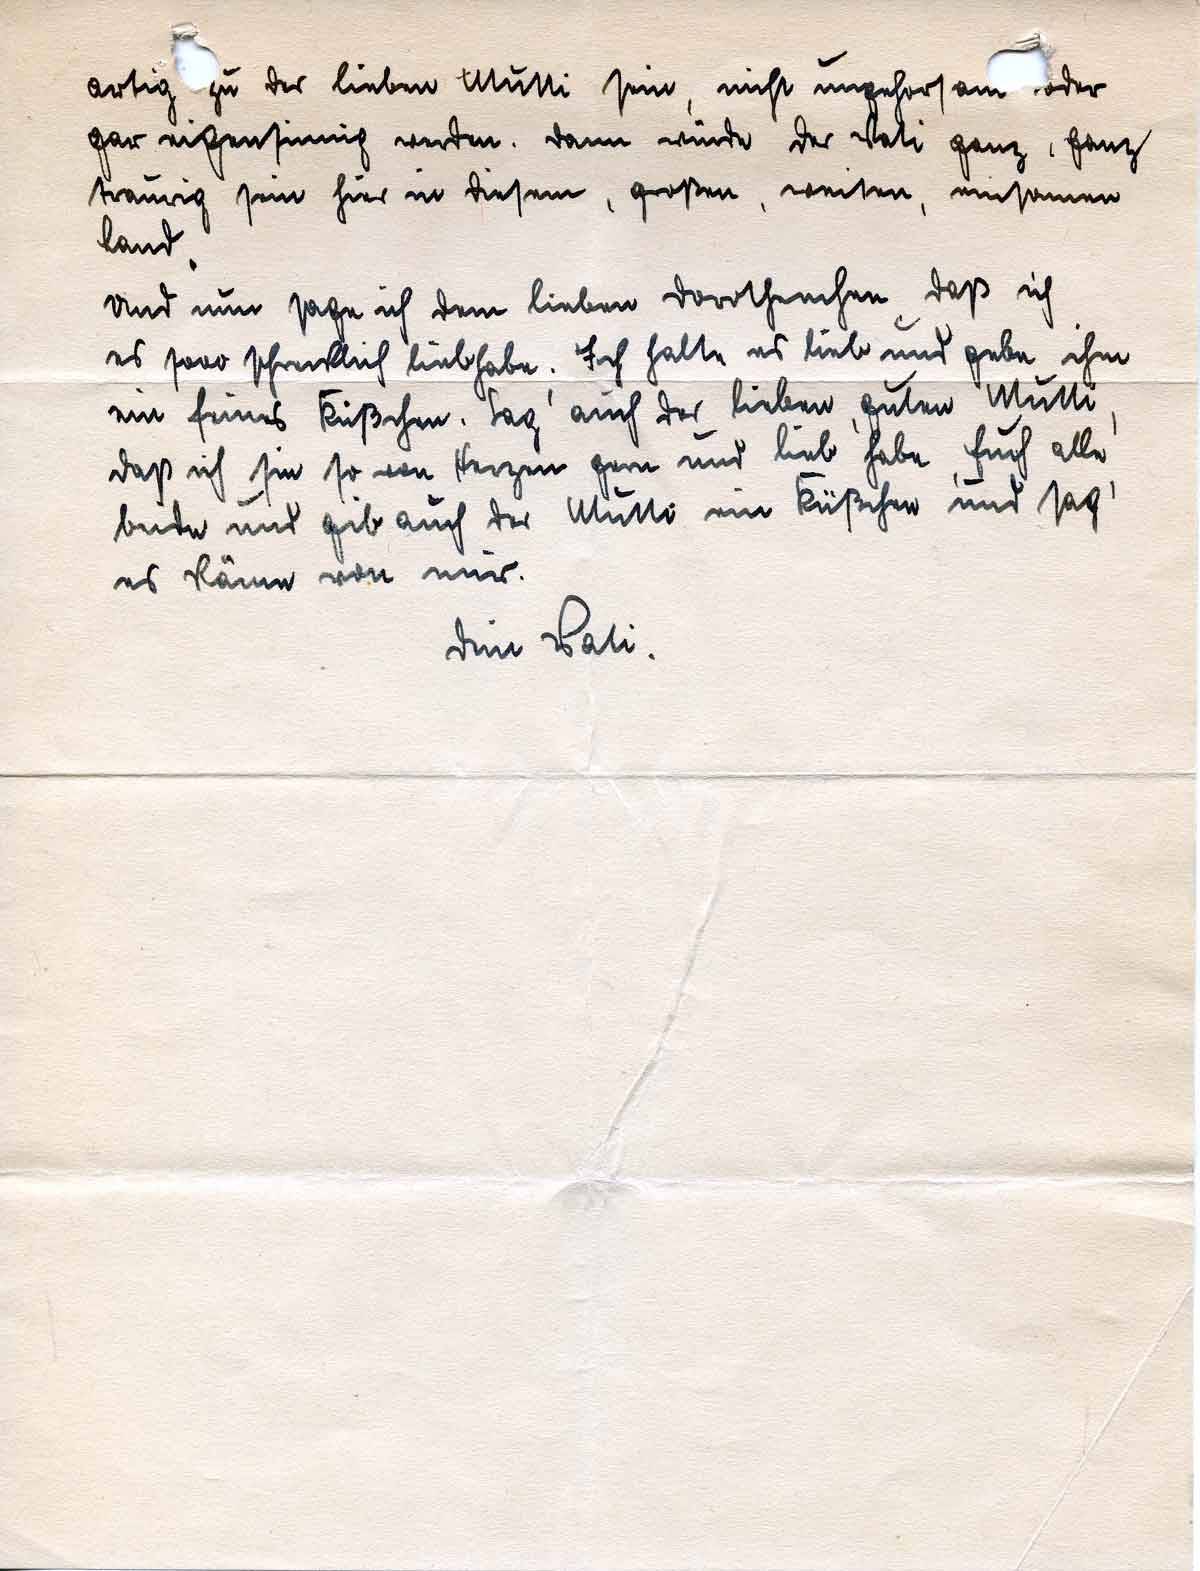 artig zu der lieben Mutti sein, nicht ungehorsam oder
gar eigensinnig werden. Dann würde der Vati ganz, ganz
traurig sein hier in diesem, großen, weiten, einsamen
Land.
Und nun sage ich dem lieben Dorothenchen, daß ich
es sooo schrecklich liebhabe. Ich halte es lieb und gebe ihm
ein feines Küßchen. Sag' auch der lieben, guten Mutti,
daß ich sie so von Herzen gern und lieb habe, Euch alle
beide und gib auch der Mutti ein Küßchen und sag'
es käme von mir.
Dein Vati.